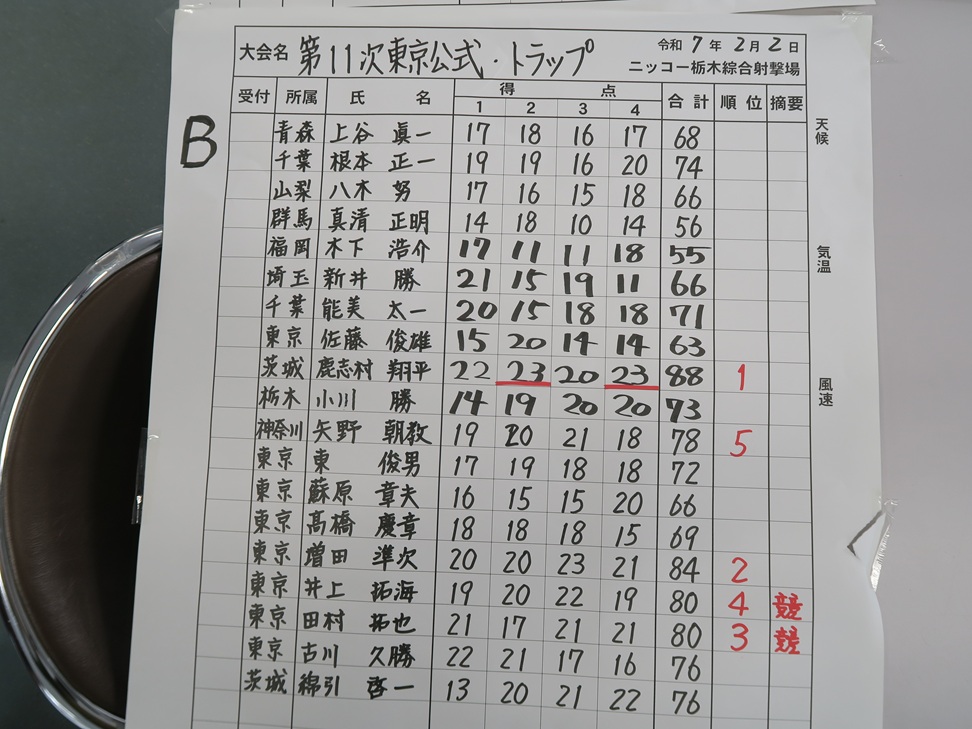 大会名 第11次東京公式・トラップ 令和7年2月2日
ニッコー栃木綜合射撃場
受付 所属 氏名 得点 合計 順位 摘要
1 2 3 4
B
青森 上谷 眞一 17 18 16 17 68
千葉 根本 正一 19 19 16 20 74
山梨 八木 努 17 16 15 18 66
群馬 真清 正明 14 18 10 14 56
福岡 木下 浩介 17 11 11 18 55
埼玉 新井 勝 21 15 19 11 66
千葉 能美 太一 20 15 18 18 71
東京 佐藤 俊雄 15 20 14 14 63
茨城 鹿志村 翔平 22 23 20 23 88 1
栃木 小川 勝 14 19 20 20 73
神奈川 矢野 朝教 19 20 21 18 78 5
東京 東 俊男 17 19 18 18 72
東京 蘇原 章夫 16 15 15 20 66
東京 髙橋 慶章 18 18 18 15 69
東京 増田 準次 20 20 23 21 84 2
東京 井上 拓海 19 20 22 19 80 4 競
東京 田村 拓也 21 17 21 21 80 3 競
東京 古川 久勝 22 21 17 16 76
茨城 綿引 啓一 13 20 21 22 76
天候
気温
風速